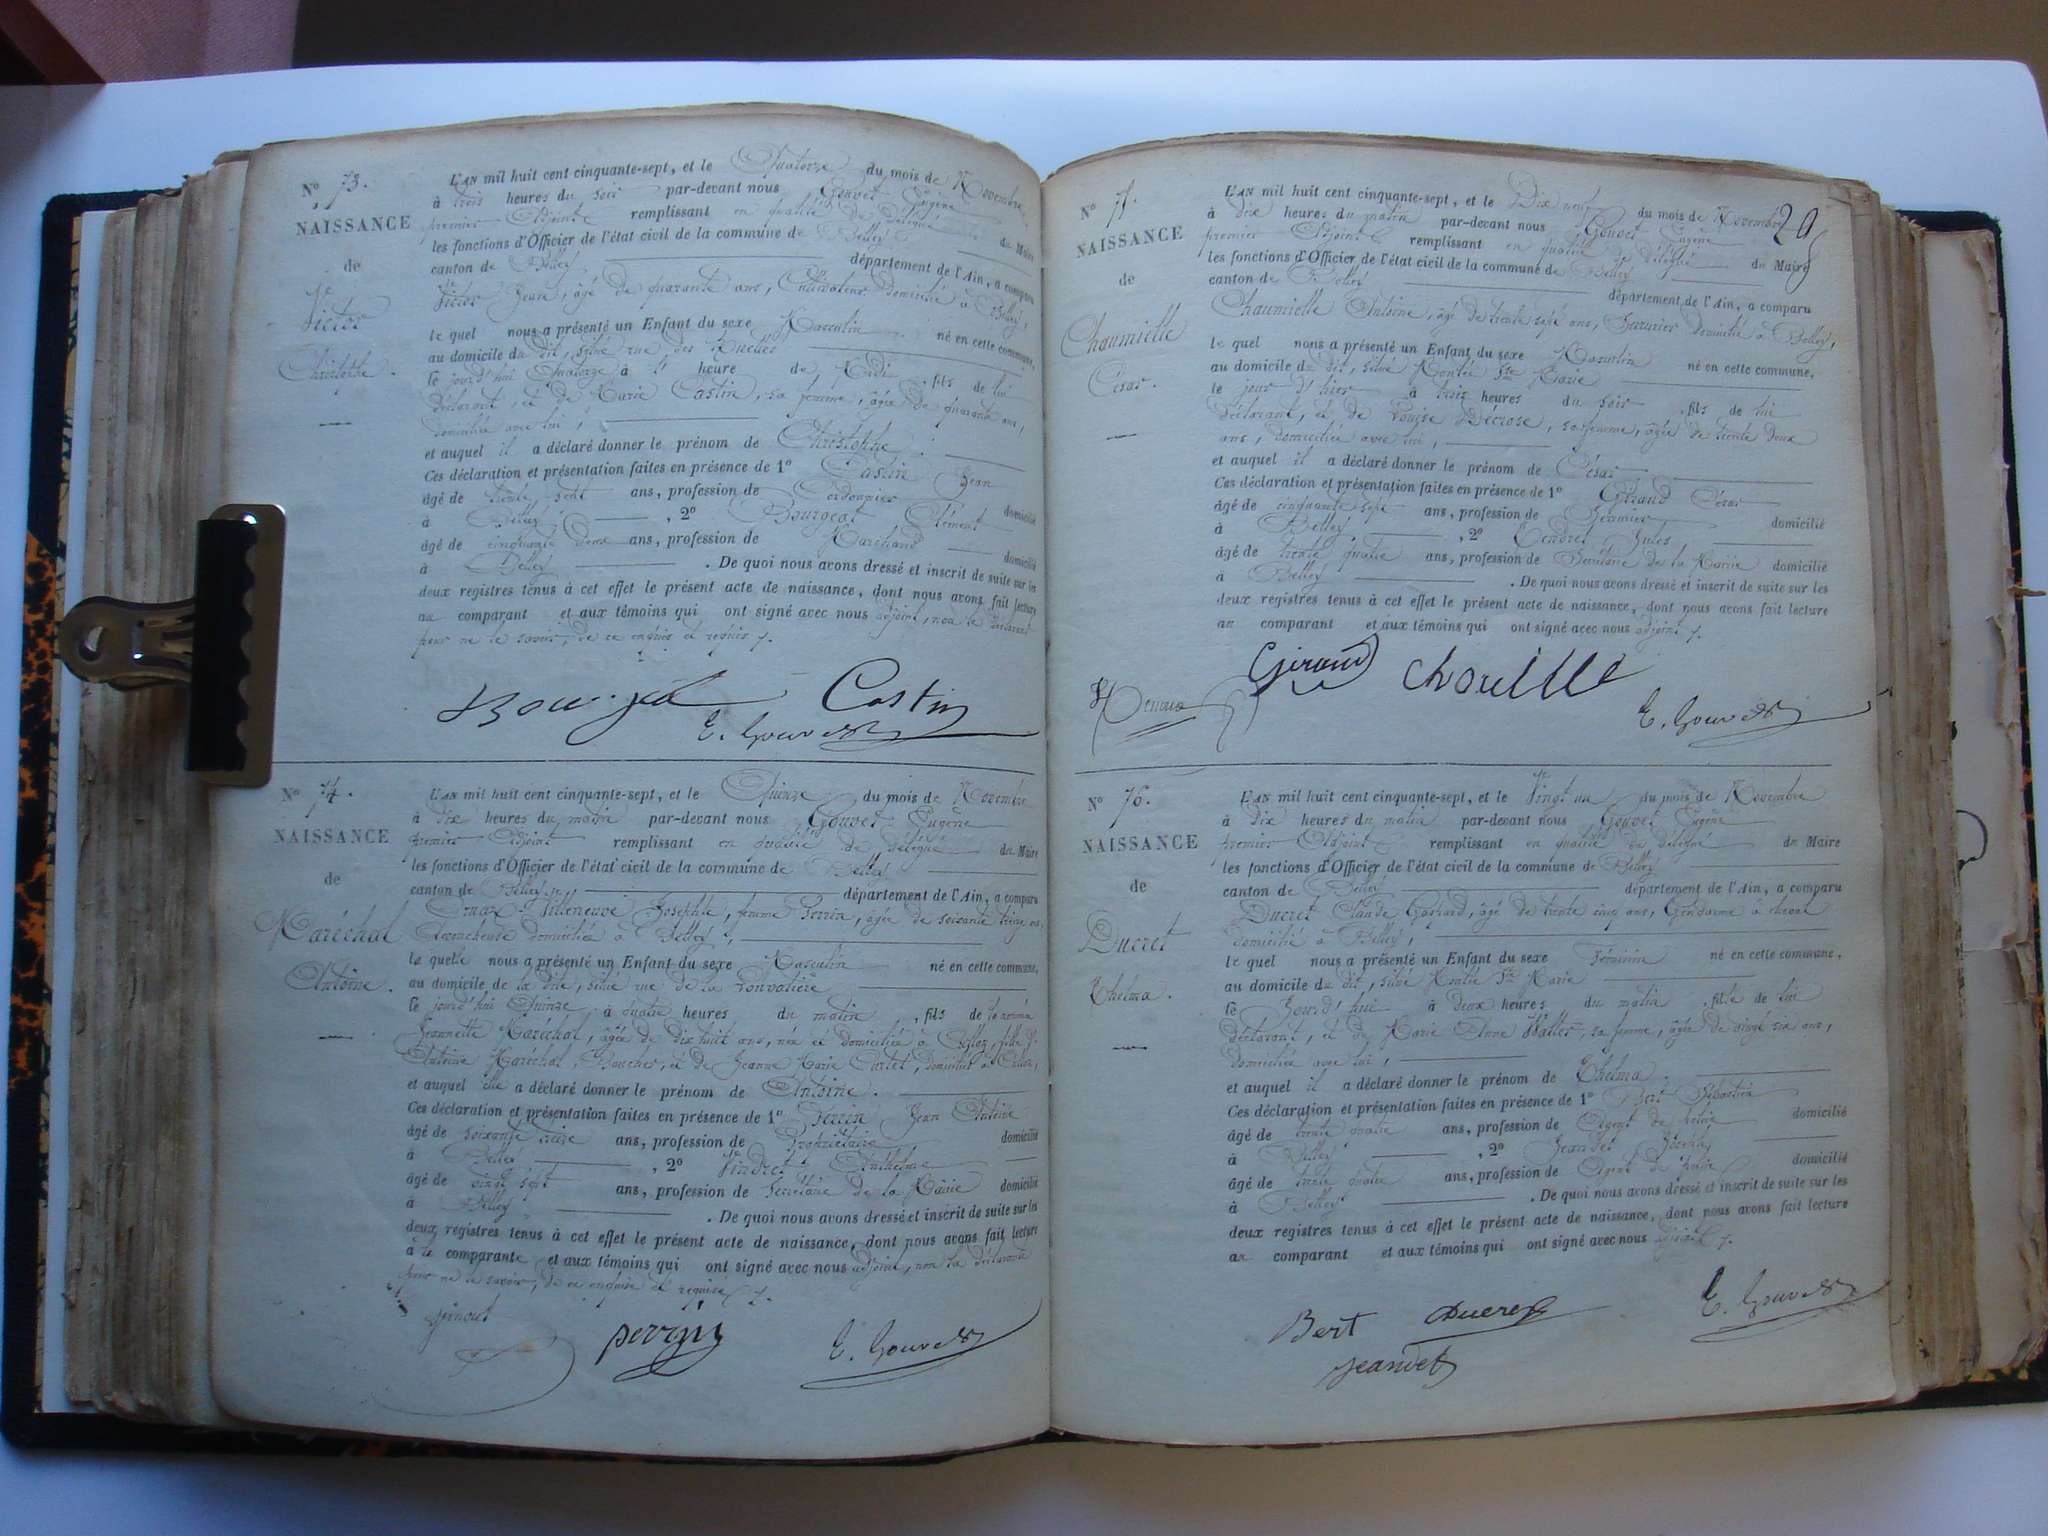 N° 73.
NAISSANCE
de
Victor
Christophe.
L'AN mil huit cent cinquante-sept, et le Quatorze du mois de Novembre
à trois heures du soir par-devant nous Gouvet Eugène
premier Adjoint remplissant en qualité de délégué du Maire
les fonctions d'Officier de l'état civil de la commune de Belley
canton de Belley département de l'Ain, a comparu
Victor Jean, âgé de quarante ans, Cultivateur domicilié à Belley,
le quel nous a présenté un Enfant du sexe Masculin né en cette commune,
au domicile du dit, situé rue des Ruelles
le jourd'hui Quatorze à 1 heure de Midi, fils de lui
déclarant, et de Marie Castin, sa femme, âgée de quarante ans,
domiciliée avec lui,
et auquel il a déclaré donner le prénom de Christophe.
Ces déclaration et présentation faites en présence de 1° Castin Jean
âgé de trente sept ans, profession de Cordonnier domicilié
à Belley, 2° Bourgeat Clément
âgé de cinquante deux ans, profession de Marchand domicilié
à Belley. De quoi nous avons dressé et inscrit de suite sur les
deux registres tenus à cet effet le présent acte de naissance, dont nous avons fait lecture
au comparant et aux témoins qui ont signé avec nous adjoint, non le déclarant
pour ne le savoir, de ce enquis et requis.
Castin
E. Gouvet
N° 74.
NAISSANCE
de
Maréchal
Antoine.
L'AN mil huit cent cinquante-sept, et le Quinze du mois de Novembre
à dix heures du matin par-devant nous Gouvet Eugène
premier Adjoint remplissant en qualité de délégué du Maire
les fonctions d'Officier de l'état civil de la commune de Belley
canton de Belley département de l'Ain, a comparu
Villeneuve Josephte, femme Perrin, âgée de soixante treize ans,
Accoucheuse domiciliée à Belley,
la quelle nous a présenté un Enfant du sexe Masculin né en cette commune,
au domicile de la dite, situé rue de la
le jourd'hui Quinze à quatre heures du matin, fils de la nommée
Jeannette Maréchal, âgée de dix huit ans, née et domiciliée à
Antoine Maréchal, Boucher, et de Jeanne Marie
et auquel elle a déclaré donner le prénom de Antoine.
Ces déclaration et présentation faites en présence de 1° Perrin Jean Antoine
âgé de soixante treize ans, profession de Propriétaire domicilié
à Belley, 2° Anthelme
âgé de vingt sept ans, profession de Secrétaire de la Mairie domicilié
à Belley. De quoi nous avons dressé et inscrit de suite sur les
deux registres tenus à cet effet le présent acte de naissance, dont nous avons fait lecture
à la comparante et aux témoins qui ont signé avec nous adjoint, non la déclarante
pour ne le savoir, de ce enquise et requise.
perrin
E. Gouvet
20
N°
NAISSANCE
de
Chaumielle
César.
L'AN mil huit cent cinquante-sept, et le Dix neuf du mois de Novembre
à dix heures du matin par-devant nous Gouvet Eugène
premier Adjoint remplissant en qualité de délégué du Maire
les fonctions d'Officier de l'état civil de la commune de Belley
canton de Belley département de l'Ain, a comparu
Chaumielle Antoine, âgé de trente sept ans, Serrurier domicilié à Belley,
le quel nous a présenté un Enfant du sexe Masculin né en cette commune,
au domicile du dit, situé Montée Ste Marie
le jour d'hier à trois heures du soir, fils de lui
déclarant, et de Louise Décrose, sa femme, âgée de trente deux
ans, domiciliée avec lui,
et auquel il a déclaré donner le prénom de César
Ces déclaration et présentation faites en présence de 1° Giraud César
âgé de cinquante sept ans, profession de domicilié
à Belley, 2° Jules,
âgé de trente quatre ans, profession de Secrétaire de la Mairie domicilié
à Belley. De quoi nous avons dressé et inscrit de suite sur les
deux registres tenus à cet effet le présent acte de naissance, dont nous avons fait lecture
au comparant et aux témoins qui ont signé avec nous adjoint.
Giraud
E. Gouvet
N° 76.
NAISSANCE
de
Ducret
Thelma.
L'AN mil huit cent cinquante-sept, et le Vingt un du mois de Novembre
à dix heures du matin par-devant nous Gouvet Eugène
premier Adjoint remplissant en qualité de délégué du Maire
les fonctions d'Officier de l'état civil de la commune de Belley
canton de Belley département de l'Ain, a comparu
Ducret Claude Gaspard, âgé de trente cinq ans, Gendarme à cheval
domicilié à Belley,
le quel nous a présenté un Enfant du sexe Féminin né en cette commune,
au domicile du dit, situé Montée Ste Marie
le Jourd'hui à deux heures du matin, fille de lui
déclarant, et de Marie Anne Wattes, sa femme, âgée de vingt six ans,
domiciliée avec lui,
et auquel il a déclaré donner le prénom de Thelma.
Ces déclaration et présentation faites en présence de 1° Bert Sébastien
âgé de trente quatre ans, profession de Agent de police domicilié
à Belley, 2° Jeandet Joseph
âgé de trente quatre ans, profession de Agent de police domicilié
à Belley. De quoi nous avons dressé et inscrit de suite sur les
deux registres tenus à cet effet le présent acte de naissance, dont nous avons fait lecture
au comparant et aux témoins qui ont signé avec nous adjoint.
Bert Ducret E. Gouvet
jeandet